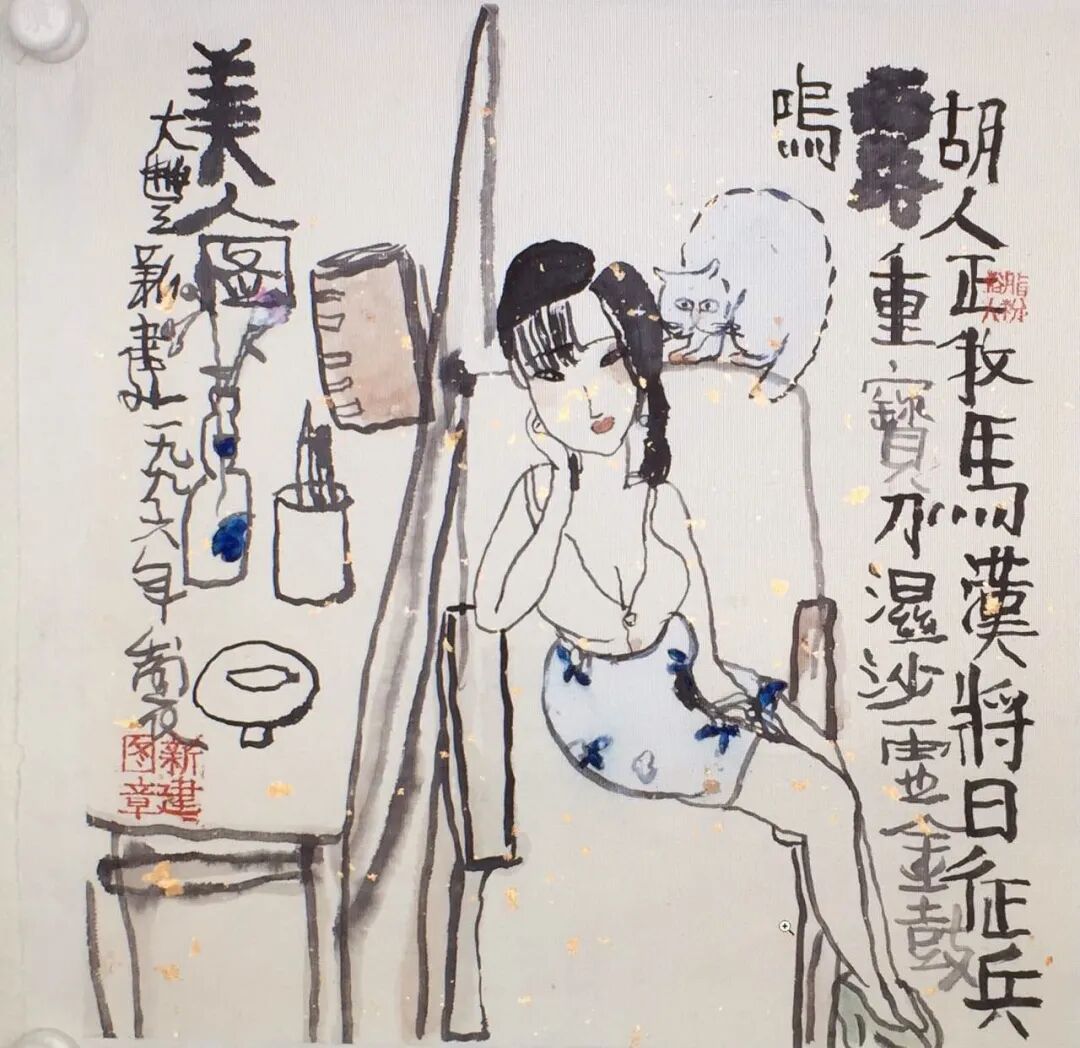 胡人正牧馬漢將日征兵
露重寶刀濕沙虛金鼓
鳴
美人图
大豐新建一九九六年
新建
图章